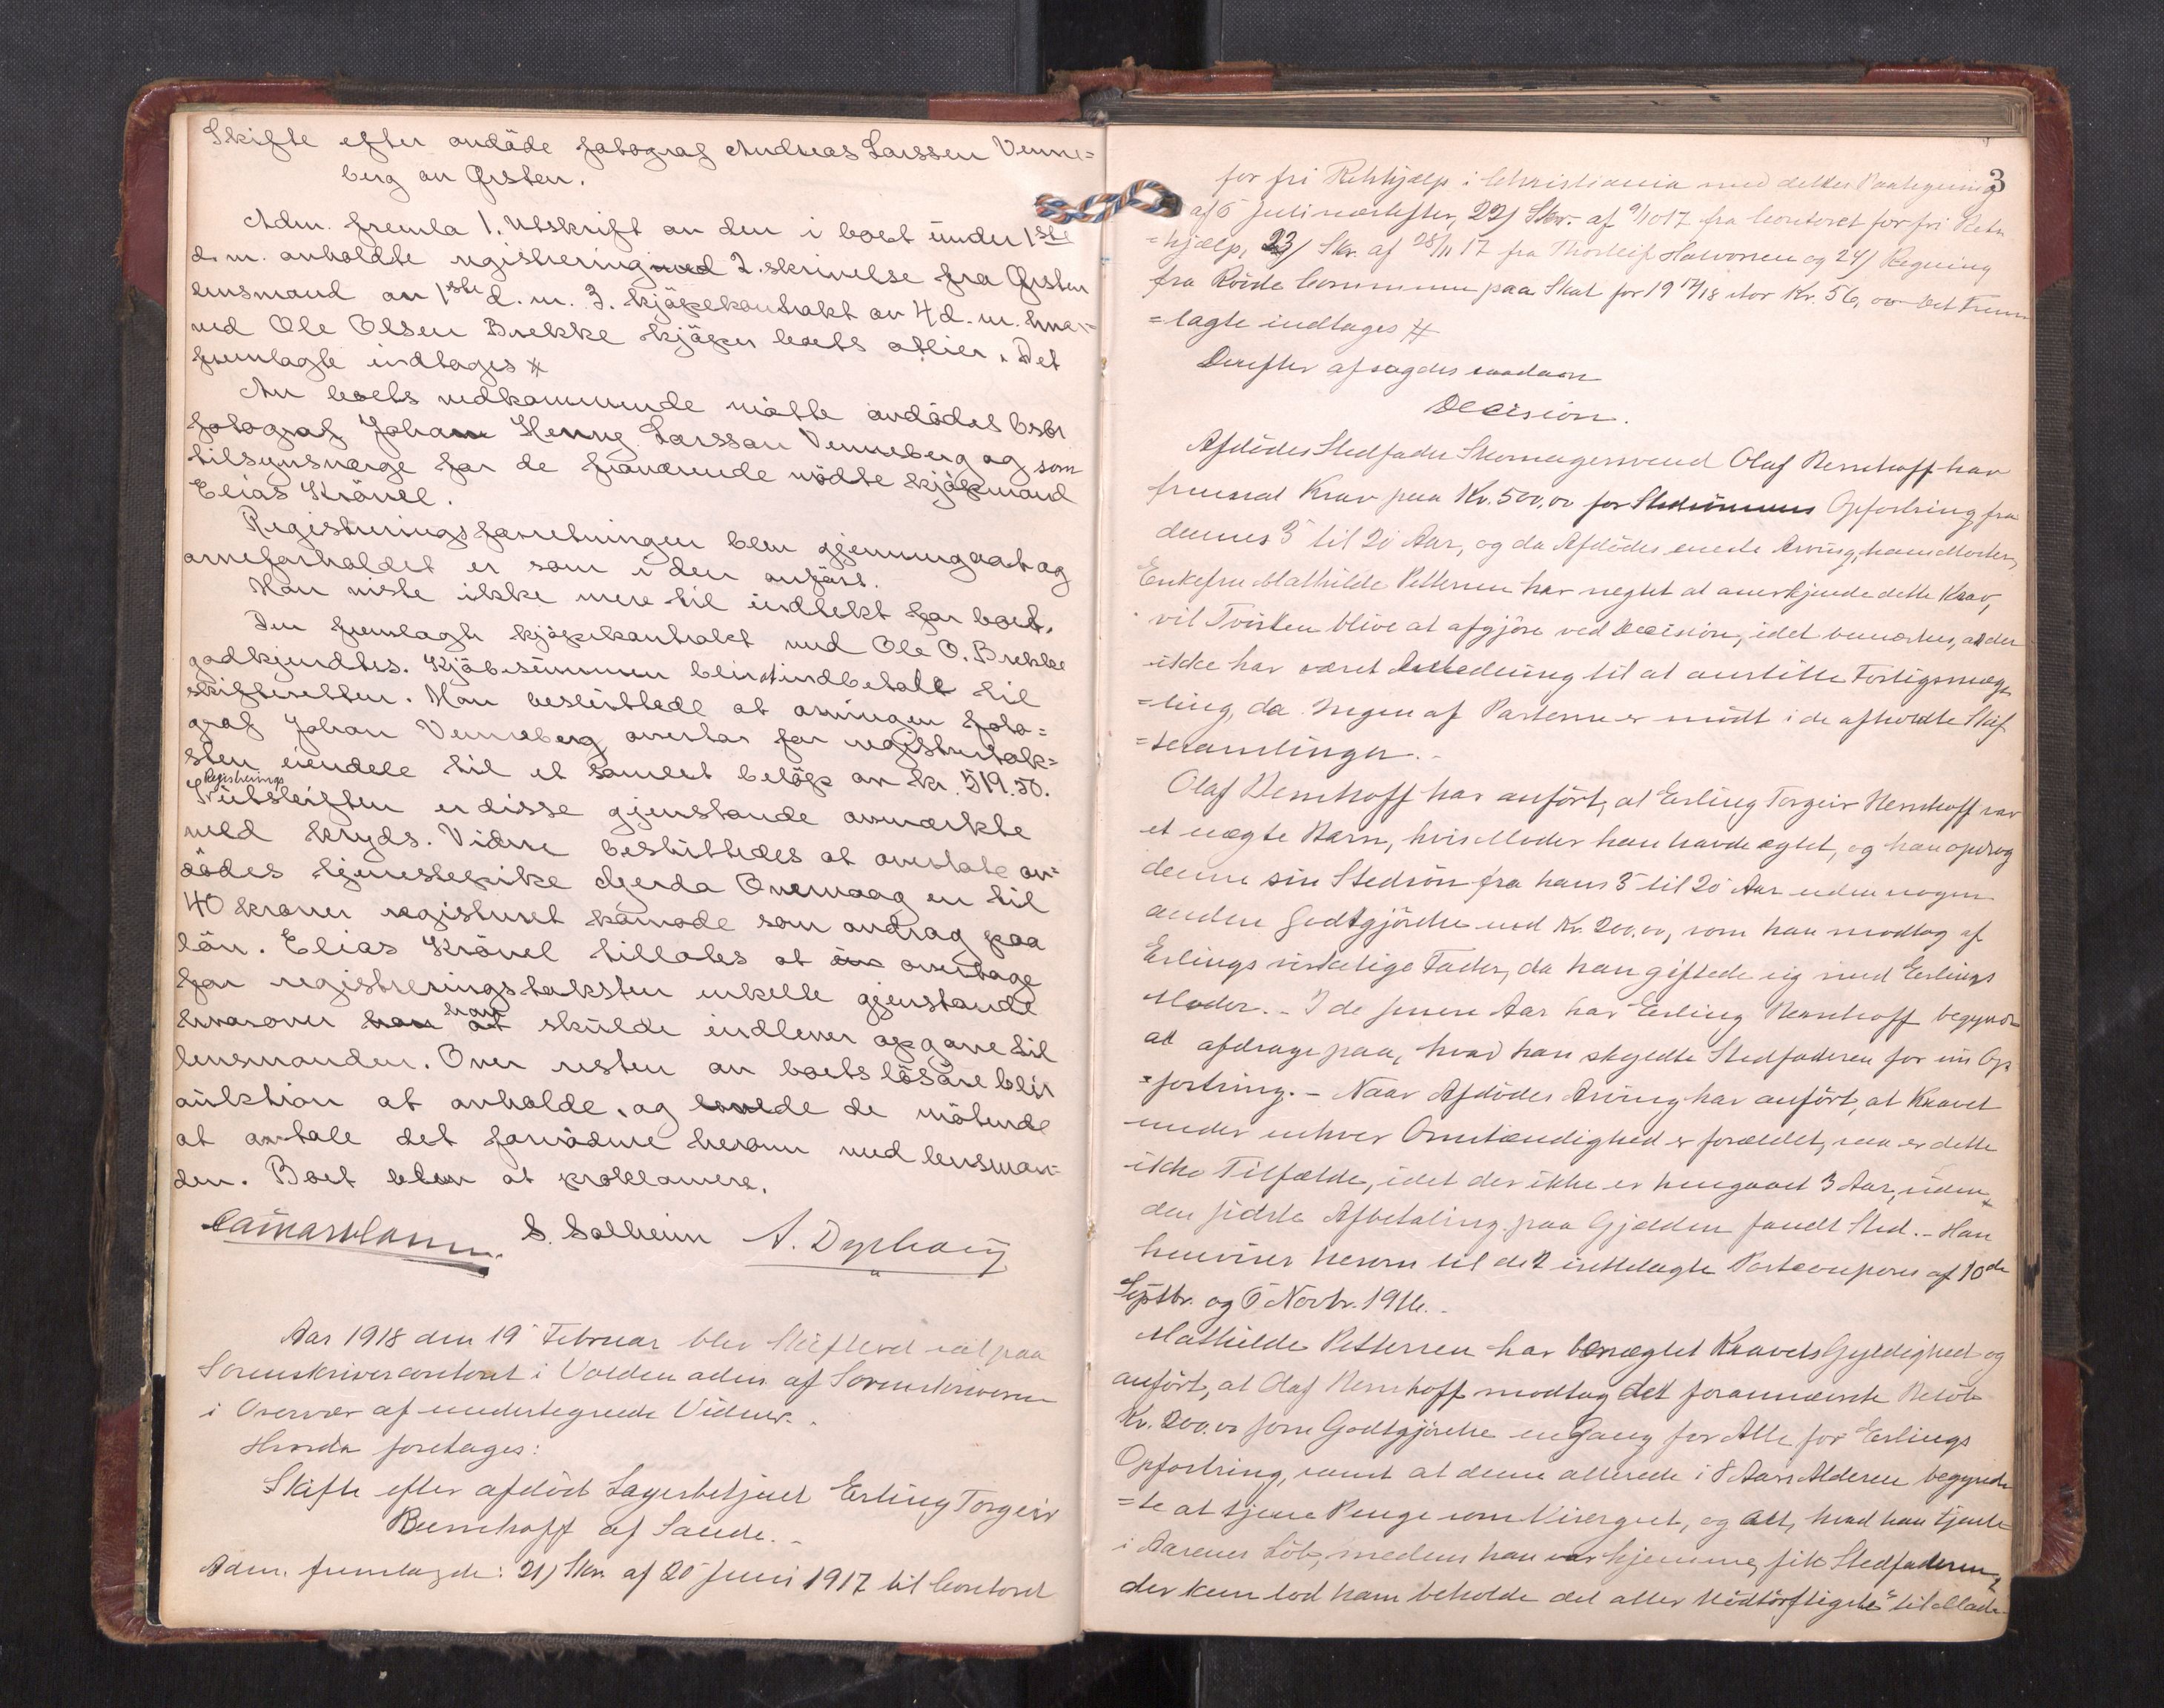 Skifte efter avdöde fotograf Andreas Larssen Venne=
berg av Ørsten.
Adm. fremla 1. utskrift av den i boet under 1ste
d.m. avholdte registrering 2. skrivelse fra Ørsten
lensmand av 1ste d.m. 3. kjöpekontrakt av 4 d.m. hvor=
ved Ole Olsen Brekke kjöper boets atlier. Det
fremlagte indtages #
Av boets vedkommende mötte avdödes bror
fotograf Johan Henry Larssen Venneberg og som
tilsynsverge for de fraværende mödte kjöpmand
Elias Krövel.
Registreringsforretningen blev gjennemgaat og
arveforholdet er som i den anfört.
Man viste ikke mere til indtekt for boet.
Den fremlagte kjöpekontrakt med Ole O. Brekke
godkjendtes. Kjöbesummen blir at indbetale til
skifteretten. Man besluttede at arvingen foto=
graf Johan Venneberg overtar for registertak=
sten eiendele til et samlet belöp av kr. 519.50.
I registerings
utskriften er disse gjenstande avmærkte
med kryds. Videre besluttedes at overlate av=
dödes tjenestepike Gjerda Overvaag en til
40 kroner registreret komode som avdrag paa
lön. Elias Krövel tillates at overtage
for registreringstaksten enkelte gjenstande
hvorover han skulde indlever opgave til
lensmanden. Over resten av boets lösöre blir
auktion at avholde, og lovede de mötende
at avtale det fornödne herom med lensman=
den. Boet blev at proklamere.
S. Solheim A. Döphavig
Aar 1918 den 19 Februar blev Skifteret sat paa
Sorenskrivercontoret i Volden adm. af Sorenskriveren
i Overvær af undertegnede Vidner.
Hvorda foretages:
Skifte efter afdöd Lagerbetjent Erling Torgeir
Bernhoff af Sande.
Adm. fremlagde: 21) Skr. af 20 Juni 1917 til Contoret
3
for fri Retshjælp i Christiania med dettes Paategning
af 6 Juli næstefter, 22) Skr. af 9/10 17 fra Contoret for fri Rets
=hjælp, 23) Skr. af 28/11 17 fra Thorleif Halvorsen og 24) Regning
fra Rövde Commune paa Skat for 19 17/18 stor Kr. 56,00 Det Frem
=lagte indtages #
Derefter afsagdes saadan
Decision.
Afdödes Stedfader Skomagersvend Olaf Bernhoff har
fremsat Krav paa Kr. 500,00 for Stedsönnens Opfostring fra
dennes 3 til 20 Aar, og da Afdödes eneste Arving, hans Moder,
Enkefru Mathilde Pettersen har negtet at anerkjende dette Krav,
vil Tvisten blive at afgjöre ved Decision, idet bemærkes, at der
ikke har været Anledning til at anstille Forligsmæg
=ling, da Ingen af Parterne er mödt i de afholdte Skif
=tesamlinger.
Olaf Bernhoff har anfört, at Erling Torgeir Bernhoff var
et uægte Barn, hvis Moder han havde ægtet, og han opdrog
denne sin Stedsön fra hans 3 til 20 Aar uden nogen
anden Godtgjörelse end Kr. 200,00, som han modtog af
Erlings virkelige Fader, da han giftede sig med Erlings
Moder. - I de senere Aar har Erling Bernhoff begyndt
at afdrage paa, hvad han skyldte Stedfaderen for sin Op
=fostring. - Naar Afdödes Arving har anfört, at Kravet
under enhver Omstændighed er forældet, saa er dette
ikke Tilfælde, idet der ikke er hengaaet 3 Aar, siden
den sidste Afbetaling paa Gjælden fandt Sted. - Han
henviser herom til de 2 indlagte Postcouponer af 10de
Septbr. og 6 Novbr. 1916.
Mathilde Pettersen har benægtet Kravets Gyldighed og
anfört, at Olaf Bernhoff modtog det forannævnte Belöb
Kr. 200.00 som Godtgjörelse en Gang for Alle for Erlings
Opfostring, samt at denne allerede i 8 Aars Alderen begynd
=te at tjene Penge som Visergut, og Alt, hvad han tjente
i Aarenes Löb, medens han var hjemme, fik Stedfaderen,
der kun lod ham beholde det aller Nödtörftigste til Klæder